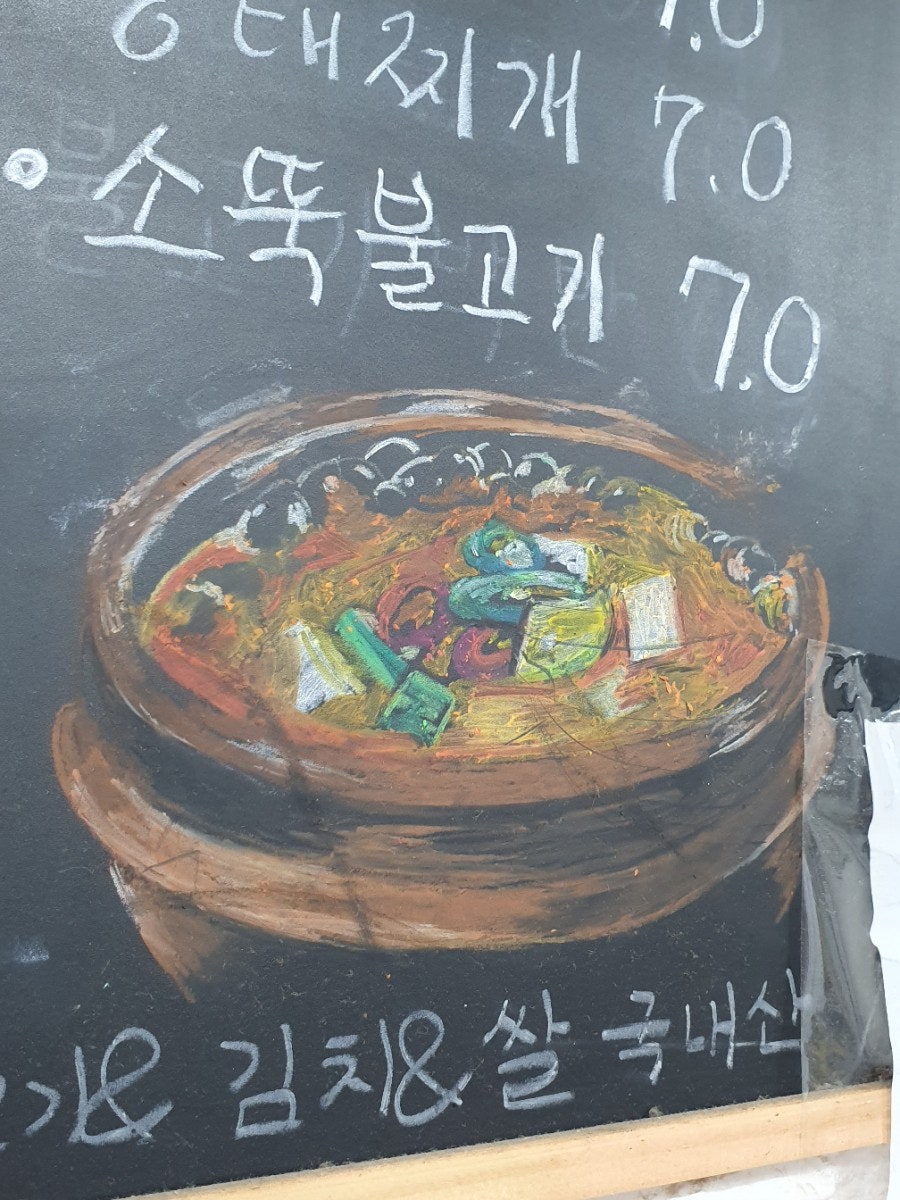 7.0
동태찌개 7.0
소뚝불고기 7.0
기& 김치& 쌀 국내산